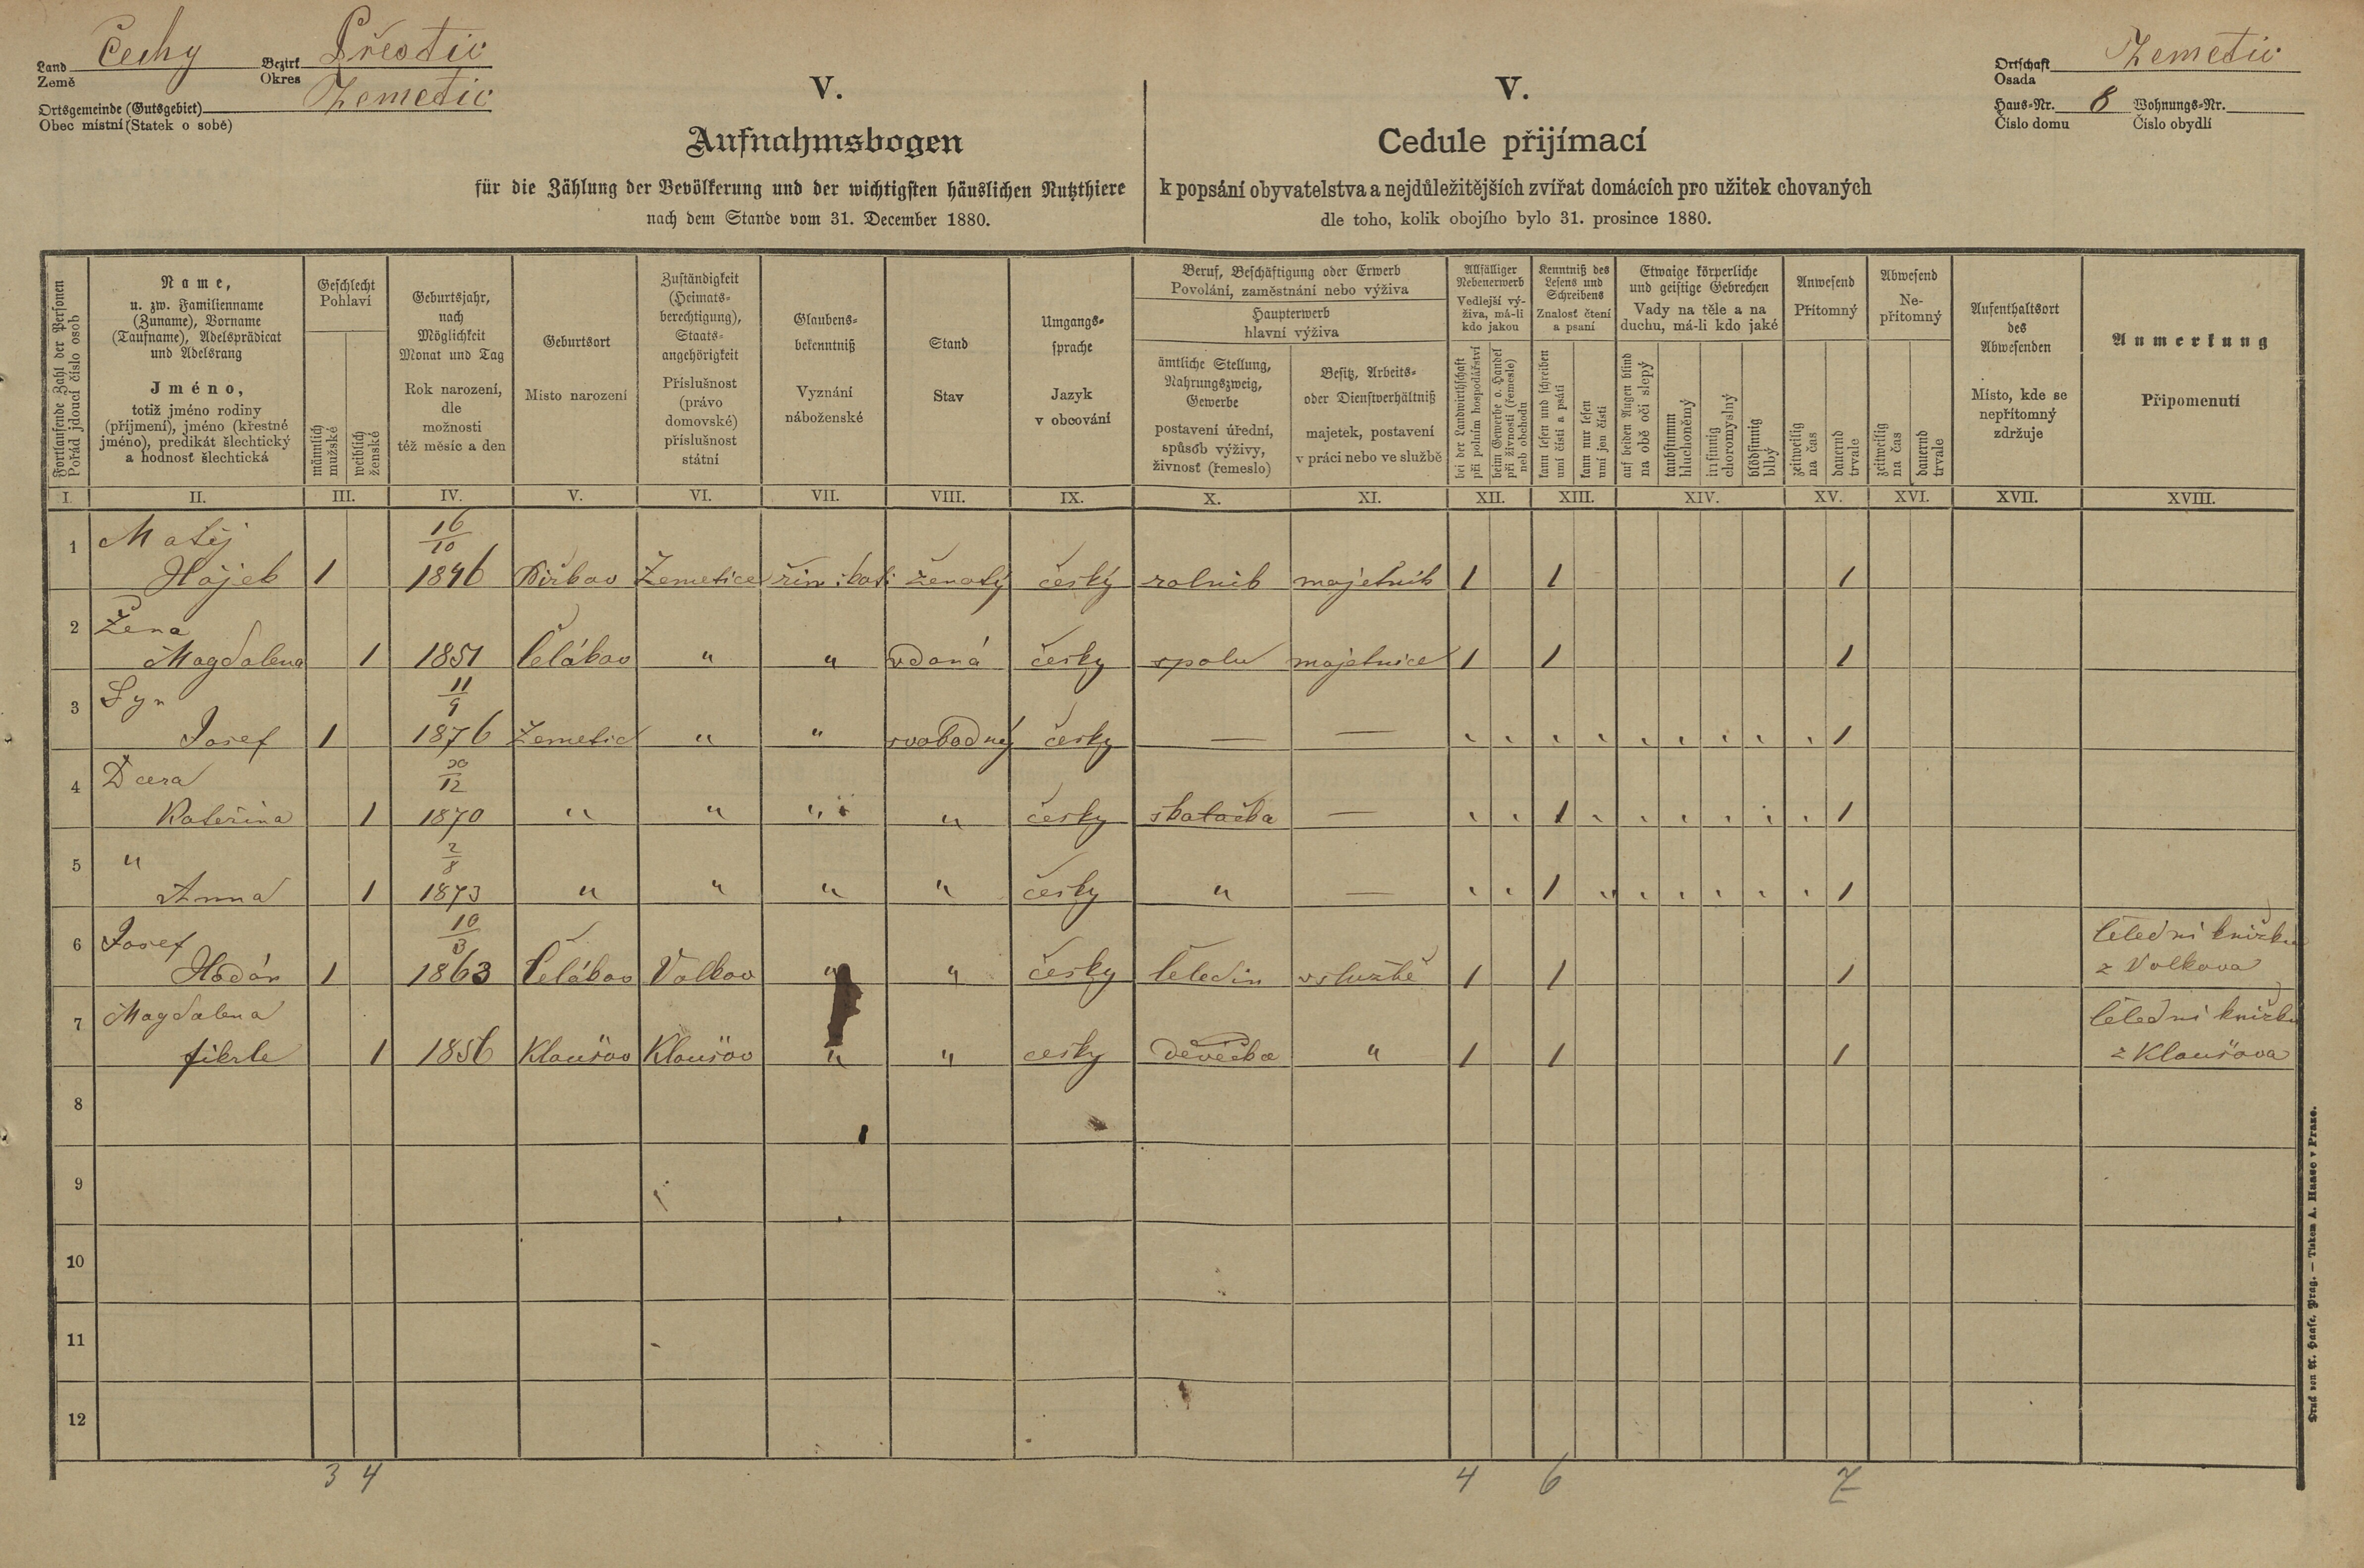 Land Čechy Bezirk Přestic
Země Okres
Ortsgemeinde (Gutsgebiet) Žemetic
Obec místní (Statek o sobě)
V.
Aufnahmsbogen
für die Zählung der Bevölkerung und der wichtigsten häuslichen Nutzthiere
nach dem Stande vom 31. December 1880.
V.
Cedule přijímací
k popsání obyvatelstva a nejdůležitějších zvířat domácích pro užitek chovaných
dle toho, kolik obojího bylo 31. prosince 1880.
Ortschaft Žemetic
Osada
Haus-Nr. 8 Wohnungs-Nr.
Číslo domu Číslo obydlí
Fortlaufende Zahl der Personen
Pořád jdoucí číslo osob
Name,
u. zw. Familienname
(Zuname), Vorname
(Taufname), Adelsprädicat
und Adelsrang
Jméno,
totiž jméno rodiny
(příjmení), jméno (křestné
jméno), predikát šlechtický
a hodnosť šlechtická
Geschlecht
Pohlaví
männlich
mužské
weiblich
ženské
Geburtsjahr,
nach
Möglichkeit
Monat und Tag
Rok narození,
dle
možnosti
též měsíc a den
Geburtsort
Místo narození
Zuständigkeit
(Heimats-
berechtigung),
Staats-
angehörigkeit
Příslušnost
(právo
domovské)
příslušnost
státní
Glaubens-
bekenntniß
Vyznání
náboženské
Stand
Stav
Umgangs-
sprache
Jazyk
v obcování
Beruf, Beschäftigung oder Erwerb
Povolání, zaměstnání nebo výživa
Haupterwerb
hlavní výživa
ämtliche Stellung,
Nahrungszweig,
Gewerbe
postavení úřední,
spůsob výživy,
živnosť (řemeslo)
Besitz, Arbeits-
oder Dienstverhältniß
majetek, postavení
v práci nebo ve službě
Allfälliger
Nebenerwerb
Vedlejší vý-
živa, má-li
kdo jakou
bei der Landwirthschaft
při polním hospodářství
beim Gewerbe o. Handel
při živnosti (řemesle)
neb obchodu
Kenntniß des
Lesens und
Schreibens
Znalosť čtení
a psaní
kann lesen und schreiben
umí čísti a psáti
kann nur lesen
umí jen čísti
Etwaige körperliche
und geistige Gebrechen
Vady na těle a na
duchu, má-li kdo jaké
auf beiden Augen blind
na obě oči slepý
taubstumm
hluchoněmý
irrsinnig
choromyslný
blödsinnig
blbý
Anwesend
Přítomný
zeitweilig
na čas
dauernd
trvale
Abwesend
Ne-
přítomný
zeitweilig
na čas
dauernd
trvale
Aufenthaltsort
des
Abwesenden
Místo, kde se
nepřítomný
zdržuje
Anmerkung
Připomenutí
I. II. III. IV. V. VI. VII. VIII. IX. X. XI. XII. XIII. XIV. XV. XVI. XVII. XVIII.
1 Matěj 16/10
Hájek 1 1846 Žemetice řím: kat: ženatý český rolník majetník 1 1 1
2 Žena
Magdalena 1 1851 Čelákov " " vdaná česky spolu majetnice 1 1 1
3 Syn 11/9
Josef 1 1876 Žemetic " " svobodný česky — — 1
4 Dcera 20/12
Kateřina 1 1870 " " " " česky školačka — 1 1
5 " 2/8
Anna 1 1873 " " " " česky " — 1 1
6 Josef 10/3 čeledni knížku
1 1863 Čelákov Volkov " " česky čeledín v službě 1 1 1 z Volkova
7 Magdalena čeledni knížku
fikrle 1 1856 Klaušov Klaušov " " cesky děvečka " 1 1 1 z Klaušova
8
9
10
11
12
3 4 4 6 7
Druck von A. Haase, Prag. — Tiskem A. Haase v Praze.